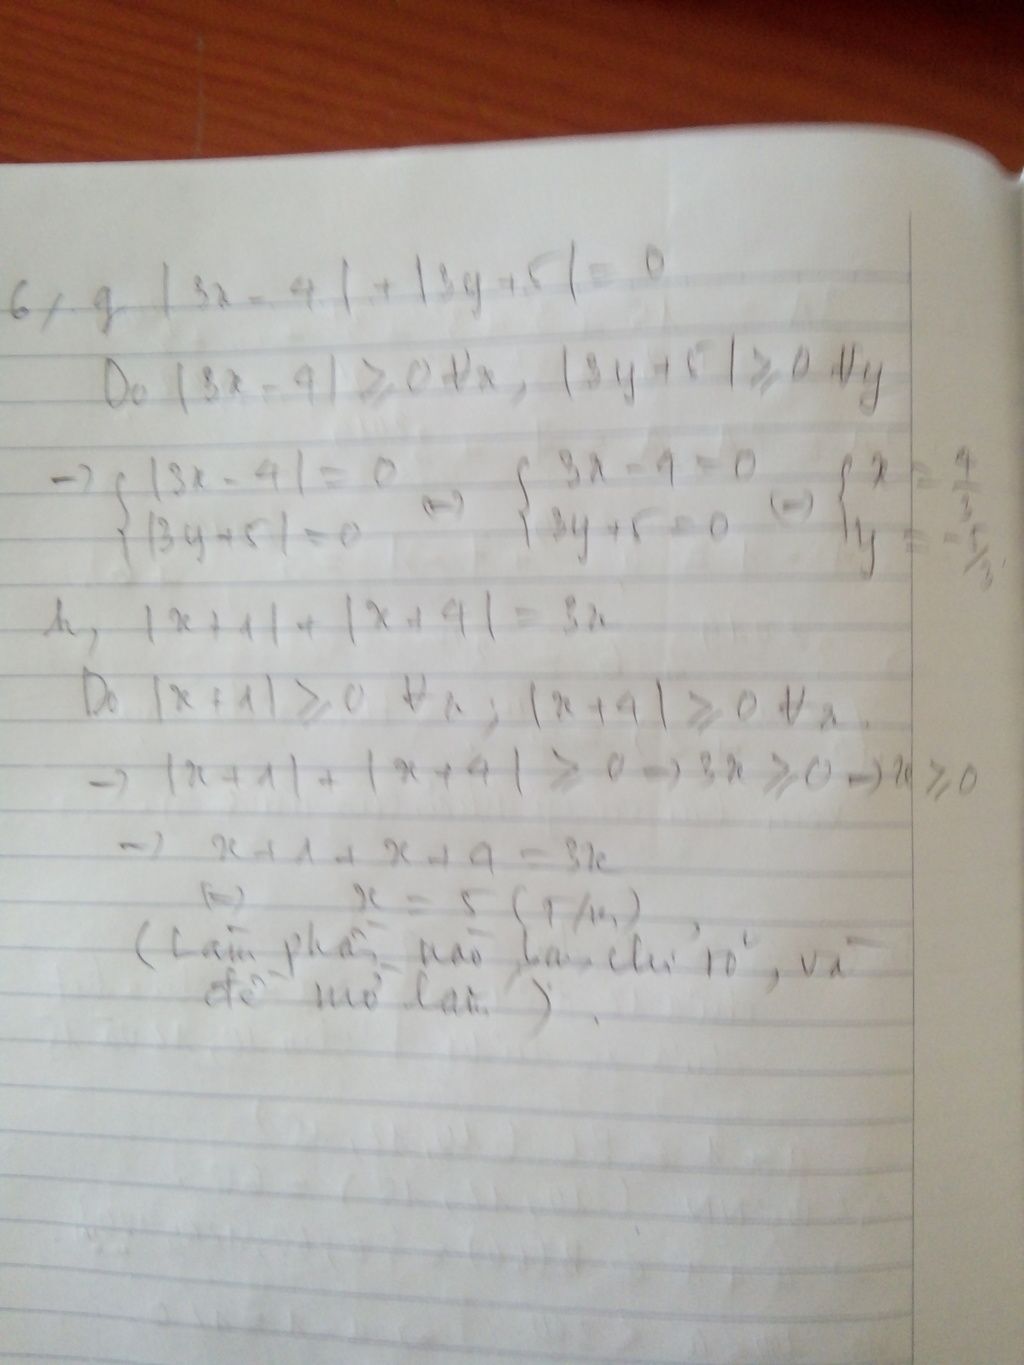 6/. g, |3x - 4| + |3y + 5| = 0
Do |3x - 4| ≥ 0 ∀x, |3y + 5| ≥ 0 ∀y
→ { |3x - 4| = 0 (=) { 3x - 4 = 0 (=) { x = 4/3
|3y + 5| = 0 3y + 5 = 0 y = -5/3
h, |x + 1| + |x + 4| = 3x
Do |x + 1| ≥ 0 ∀x; |x + 4| ≥ 0 ∀x.
→ |x + 1| + |x + 4| ≥ 0 → 3x ≥ 0 → x ≥ 0
→ x + 1 + x + 4 = 3x
(=) x = 5 (T/m)
(Làm phần nào chỉ rõ, và
đề mờ lắm).